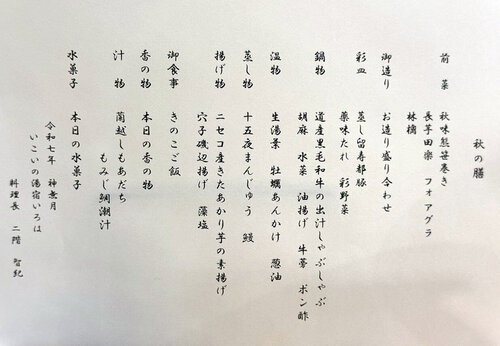 秋の膳
前菜 秋味熊笹巻き
長芋田楽 フォアグラ
林檎
御造り お造り盛り合わせ
彩皿 蒸し留寿都豚
薬味たれ 彩野菜
鍋物 道産黒毛和牛の出汁しゃぶしゃぶ
胡麻 水菜 油揚げ 牛蒡 ポン酢
温物 生湯葉 牡蠣あんかけ 葱油
蒸し物 十五夜まんじゅう 鰻
揚げ物 ニセコ産きたあかり芋の素揚げ
穴子磯辺揚げ 藻塩
御食事 きのこご飯
香の物 本日の香の物
汁物 蘭越しもあだち
もみじ鯛潮汁
水菓子 本日の水菓子
令和七年 神無月
いこいの湯宿いろは
料理長 二階 智紀